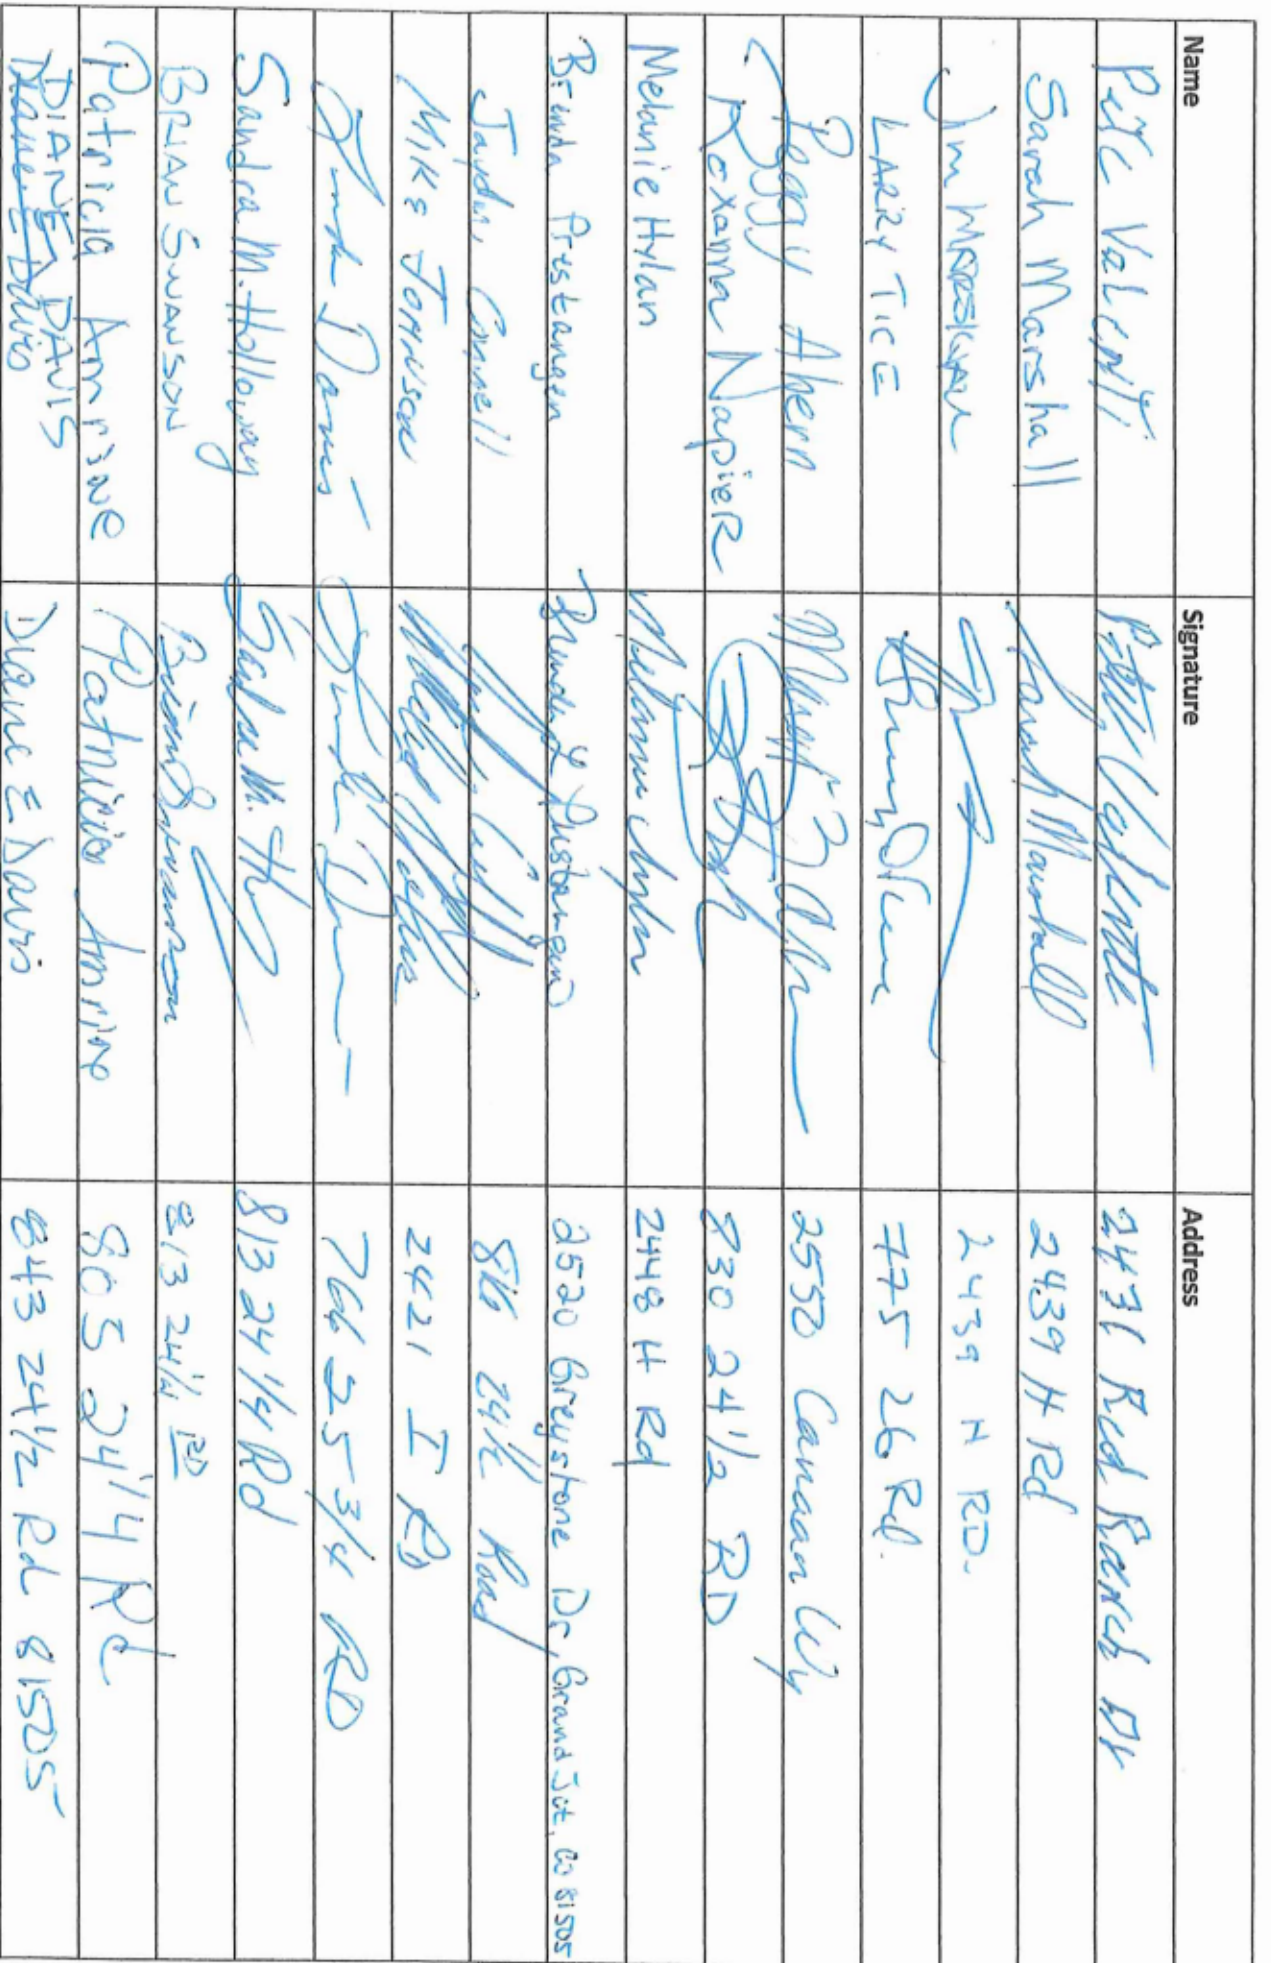 Name Signature Address
Pete Valenti 2431 Red Ranch Dr
Sarah Marshall Sarah Marshall 2439 H Rd
Jim Marshall 2439 H RD.
LARRY TICE 775 26 Rd.
Peggy Ahern 2550 Canaan Wy
Roxanna NapieR 830 24 1/2 RD
Melanie Hylan Melanie Hylan 2448 H Rd
Brenda Prestangen Brenda L Prestangen 2520 Greystone Dr, Grand Jct, CO 81505
Jayden Connell 24 1/2 Road
MIKE JOHNSON 2421 I RD
766 25-3/4 RD
Sandra M. Holloway 813 24 1/4 Rd
BRIAN SWANSON Brian Swanson 813 24 1/4 RD
Patricia Amrine Patricia Amrine 805 24 1/4 Rd
DIANE DAVIS Diane E Davis 843 24 1/2 Rd 81505
Diane E Davis